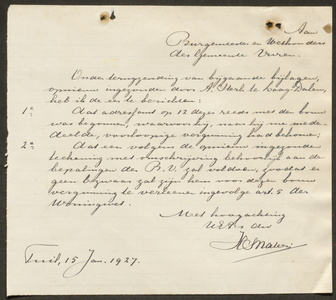 Aan
Burgemeester en Wethouders
der Gemeente Vuren.
Onder terugzending van bijgaande bijlagen,
opnieuw ingezonden door A. Sterk te Laag Dalem,
heb ik de eer te berichten:
1e: Dat adressant op 12 dezer reeds met de bouw
was begonnen, waarvoor hij, naar hij me mede-
deelde, voorloopige vergunning had bekomen;
2e: Dat een volgens de opnieuw ingezonde
teekening met omschrijving behoorlijk aan de
bepalingen der B.V. zal voldoen, zoodat er
geen bezwaar zal zijn hem voor dezen bouw
vergunning te verleenen ingevolge art. 5 der
Woningwet.
Met hoogachting
UEd. dw.
Tuil, 15 Jan. 1927.